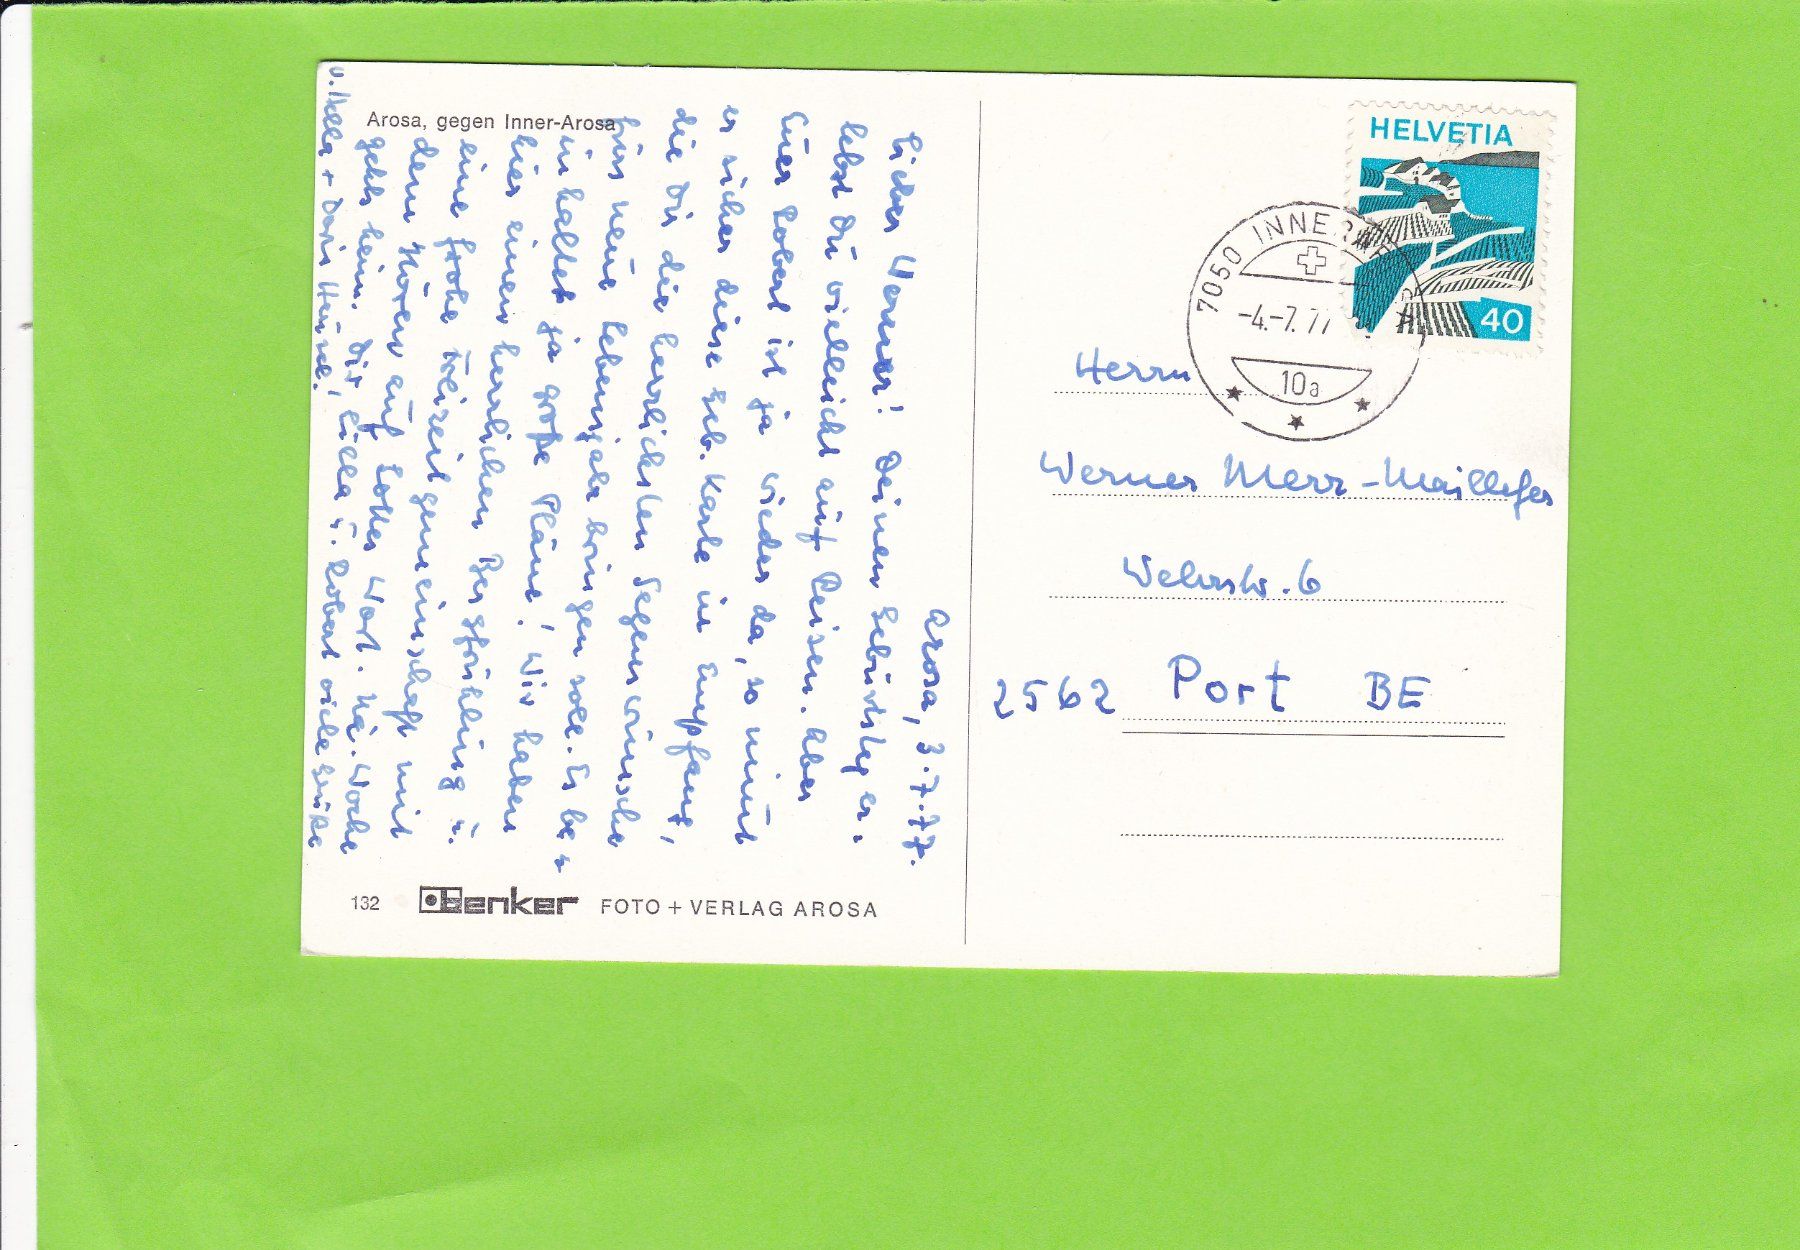 Arosa, gegen Inner-Arosa
Arosa, 3.7.77.
Lieber Werner! Deinen Geburtstag er-
lebst Du vielleicht auf Reisen. Aber
Euer Robert ist ja wieder da, so nimmt
er sicher diese Geb. Karte in Empfang,
die Dir die herrlichsten Segenswünsche
fürs neue Lebensjahr bringen soll. Es be-
inhaltet ja große Pläne! Wir haben
hier einen herrlichen Bergfrühling u.
eine frohe Freizeitgemeinschaft mit
dem Hören auf Gottes Wort. Nä. Woche
gehts heim. Dir, Lilla u. Robert viele Grüße
v. Hella + Doris
132
Benker FOTO + VERLAG AROSA
HELVETIA
40
7050 INNER
-4.-7.77
10a
Herrn
Werner Merz-Maillefer
Wehrstr. 6
2562 Port BE